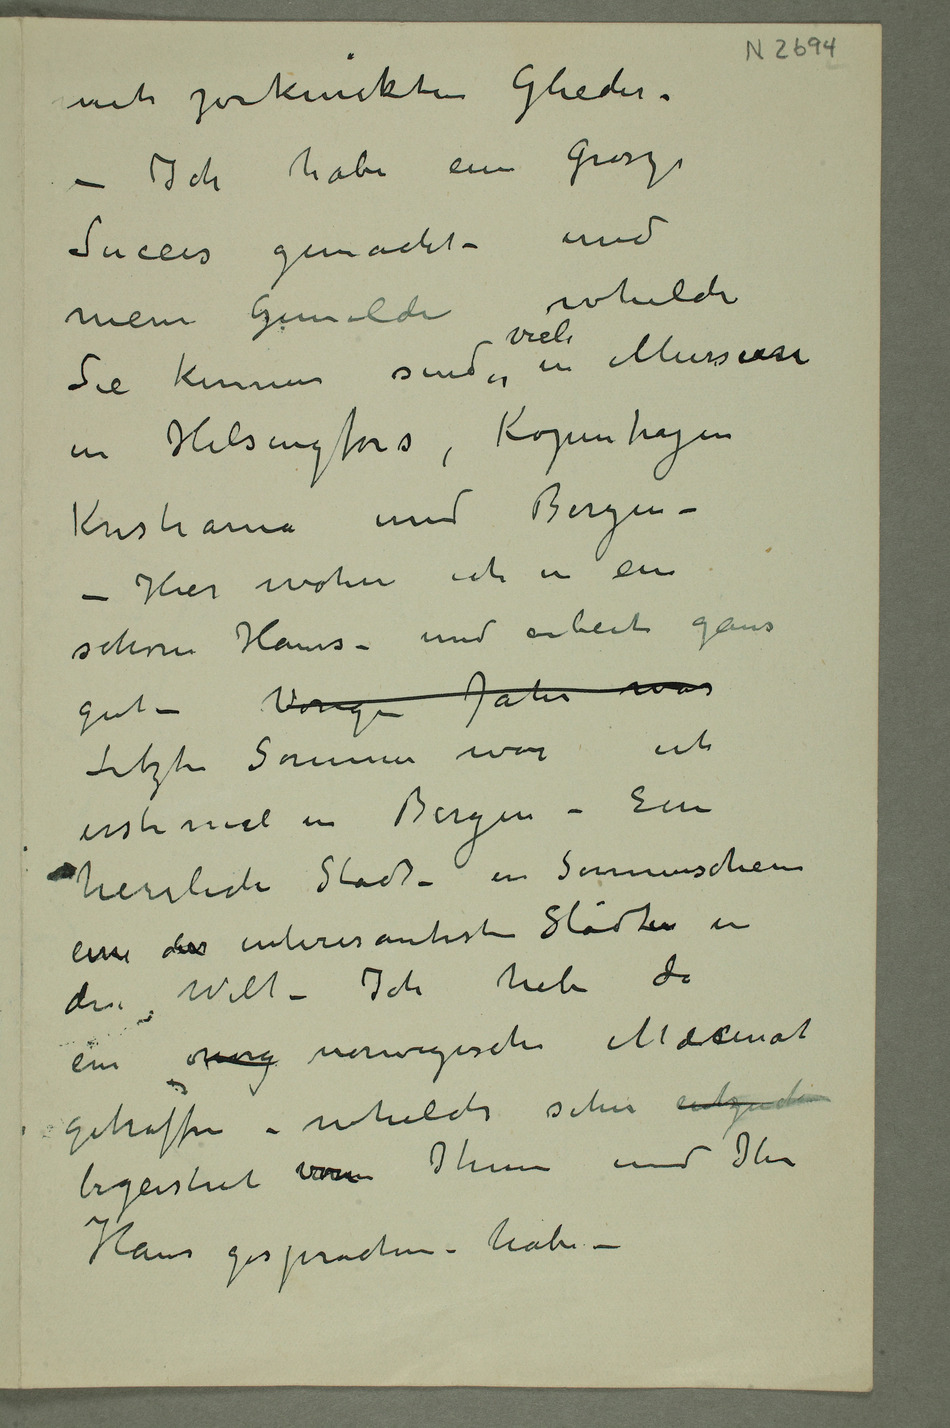 N 2694
mit zerknickten Glieder.
– Ich habe ein grosze
Succes gemacht – und
mein Gemälde whelche
Sie kennen sind viele in Museen
in Helsingfors, Kopenhagen
Kristiania und Bergen –
– Hier wohne ich in ein
schöne Haus – und arbeite gans
gut – Vorige Jahr war
Letzte Sommer war ich
erstemal in Bergen – Eine
herrliche Stadt – in Sonnenschein
eine der interesantesten Städten in
der Welt – Ich habe da
ein norwegische Mæcenat
getroffen – whelche sehr entzückt
begeistret von Ihnen und Ihr
Haus gesprochen – habe –